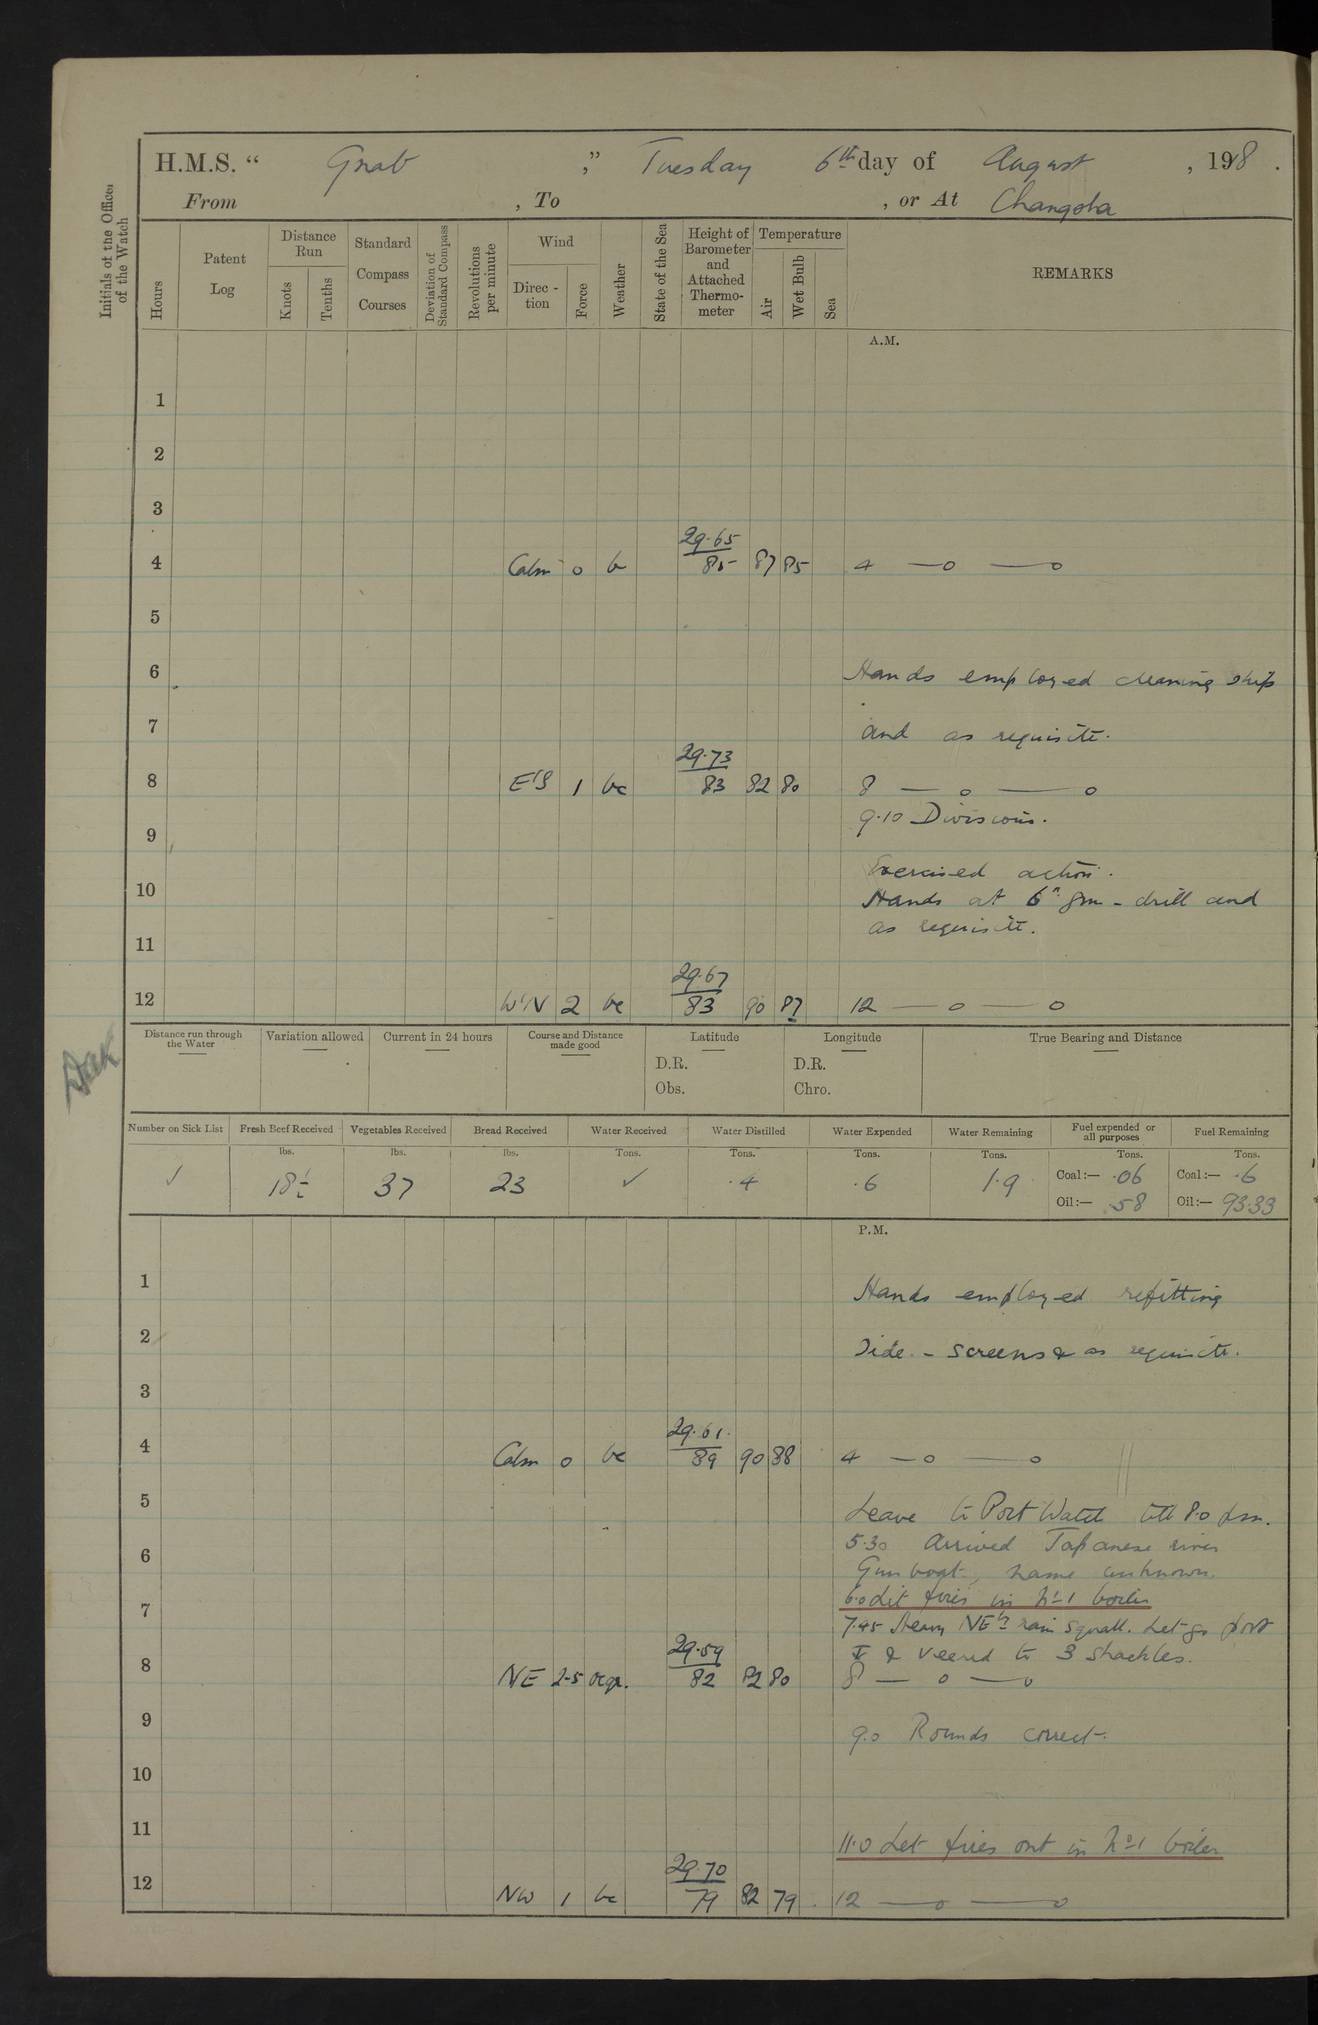 H.M.S. “ Gnat ,” Tuesday 6th day of August , 1918 .
From , To , or At Changsha
Initials of the Officer of the Watch
Hours
Patent Log
Distance Run
Knots
Tenths
Standard Compass Courses
Deviation of Standard Compass
Revolutions per minute
Wind
Direc-tion
Force
Weather
State of the Sea
Height of Barometer and Attached Thermo-meter
Temperature
Air
Wet Bulb
Sea
REMARKS
A.M.
1
2
3
29.65
4 Calm 0 b 85 87 85 4 —o —o
5
6 Hands employed cleaning ship
7 and as requisite.
29.73
8 E'S 1 bc 83 82 80 8 — o — o
9.10 Divisions.
9
Exercised action.
10 Hands at 6" gun - drill and
as requisite.
11
29.67
12 W'N 2 bc 83 90 87 12 — o — o
Distance run through the Water
Variation allowed
Current in 24 hours
Course and Distance made good
Latitude
D.R.
Obs.
Longitude
D.R.
Chro.
True Bearing and Distance
Number on Sick List Fresh Beef Received Vegetables Received Bread Received Water Received Water Distilled Water Expended Water Remaining Fuel expended or all purposes Fuel Remaining
lbs. lbs. lbs. Tons. Tons. Tons. Tons. Tons. Tons.
✓ 18½ 37 23 ✓ .4 .6 1.9 Coal:— .06 Coal:— .6
Oil:— .58 Oil:— 93.33
P.M.
1 Hands employed refitting
2 Side - screens & as requisite.
3
29.61
4 Calm 0 bc 89 90 88 4 —o —o
5 Leave to Port Watch till 8.0 pm.
5.30 Arrived Japanese river
6 Gunboat, name unknown.
6.0 Lit fires in No 1 boiler
7
7.45 Heavy NEly rain squall. Let go port
29.59
8 & veered to 3 shackles.
NE 2-5 ocqr. 82 82 80 8 — o — o
9 9.0 Rounds correct.
10
11 11.0 Let fires out in No 1 boiler
29.70
12 NW 1 bc 79 82 79 12 — o — o